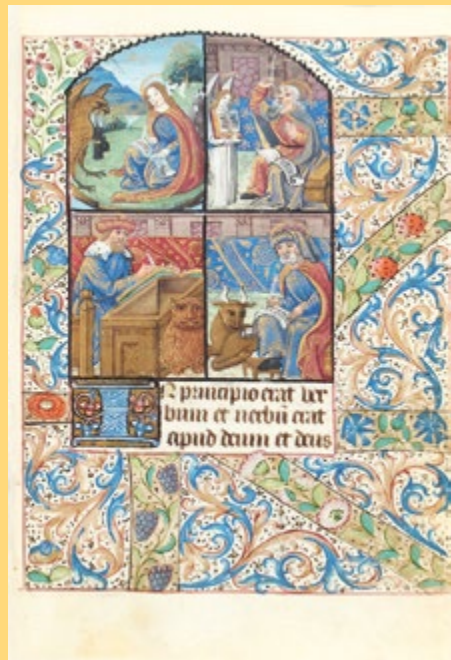 In principio erat ver
bum et verbū erat
apud deum et deus